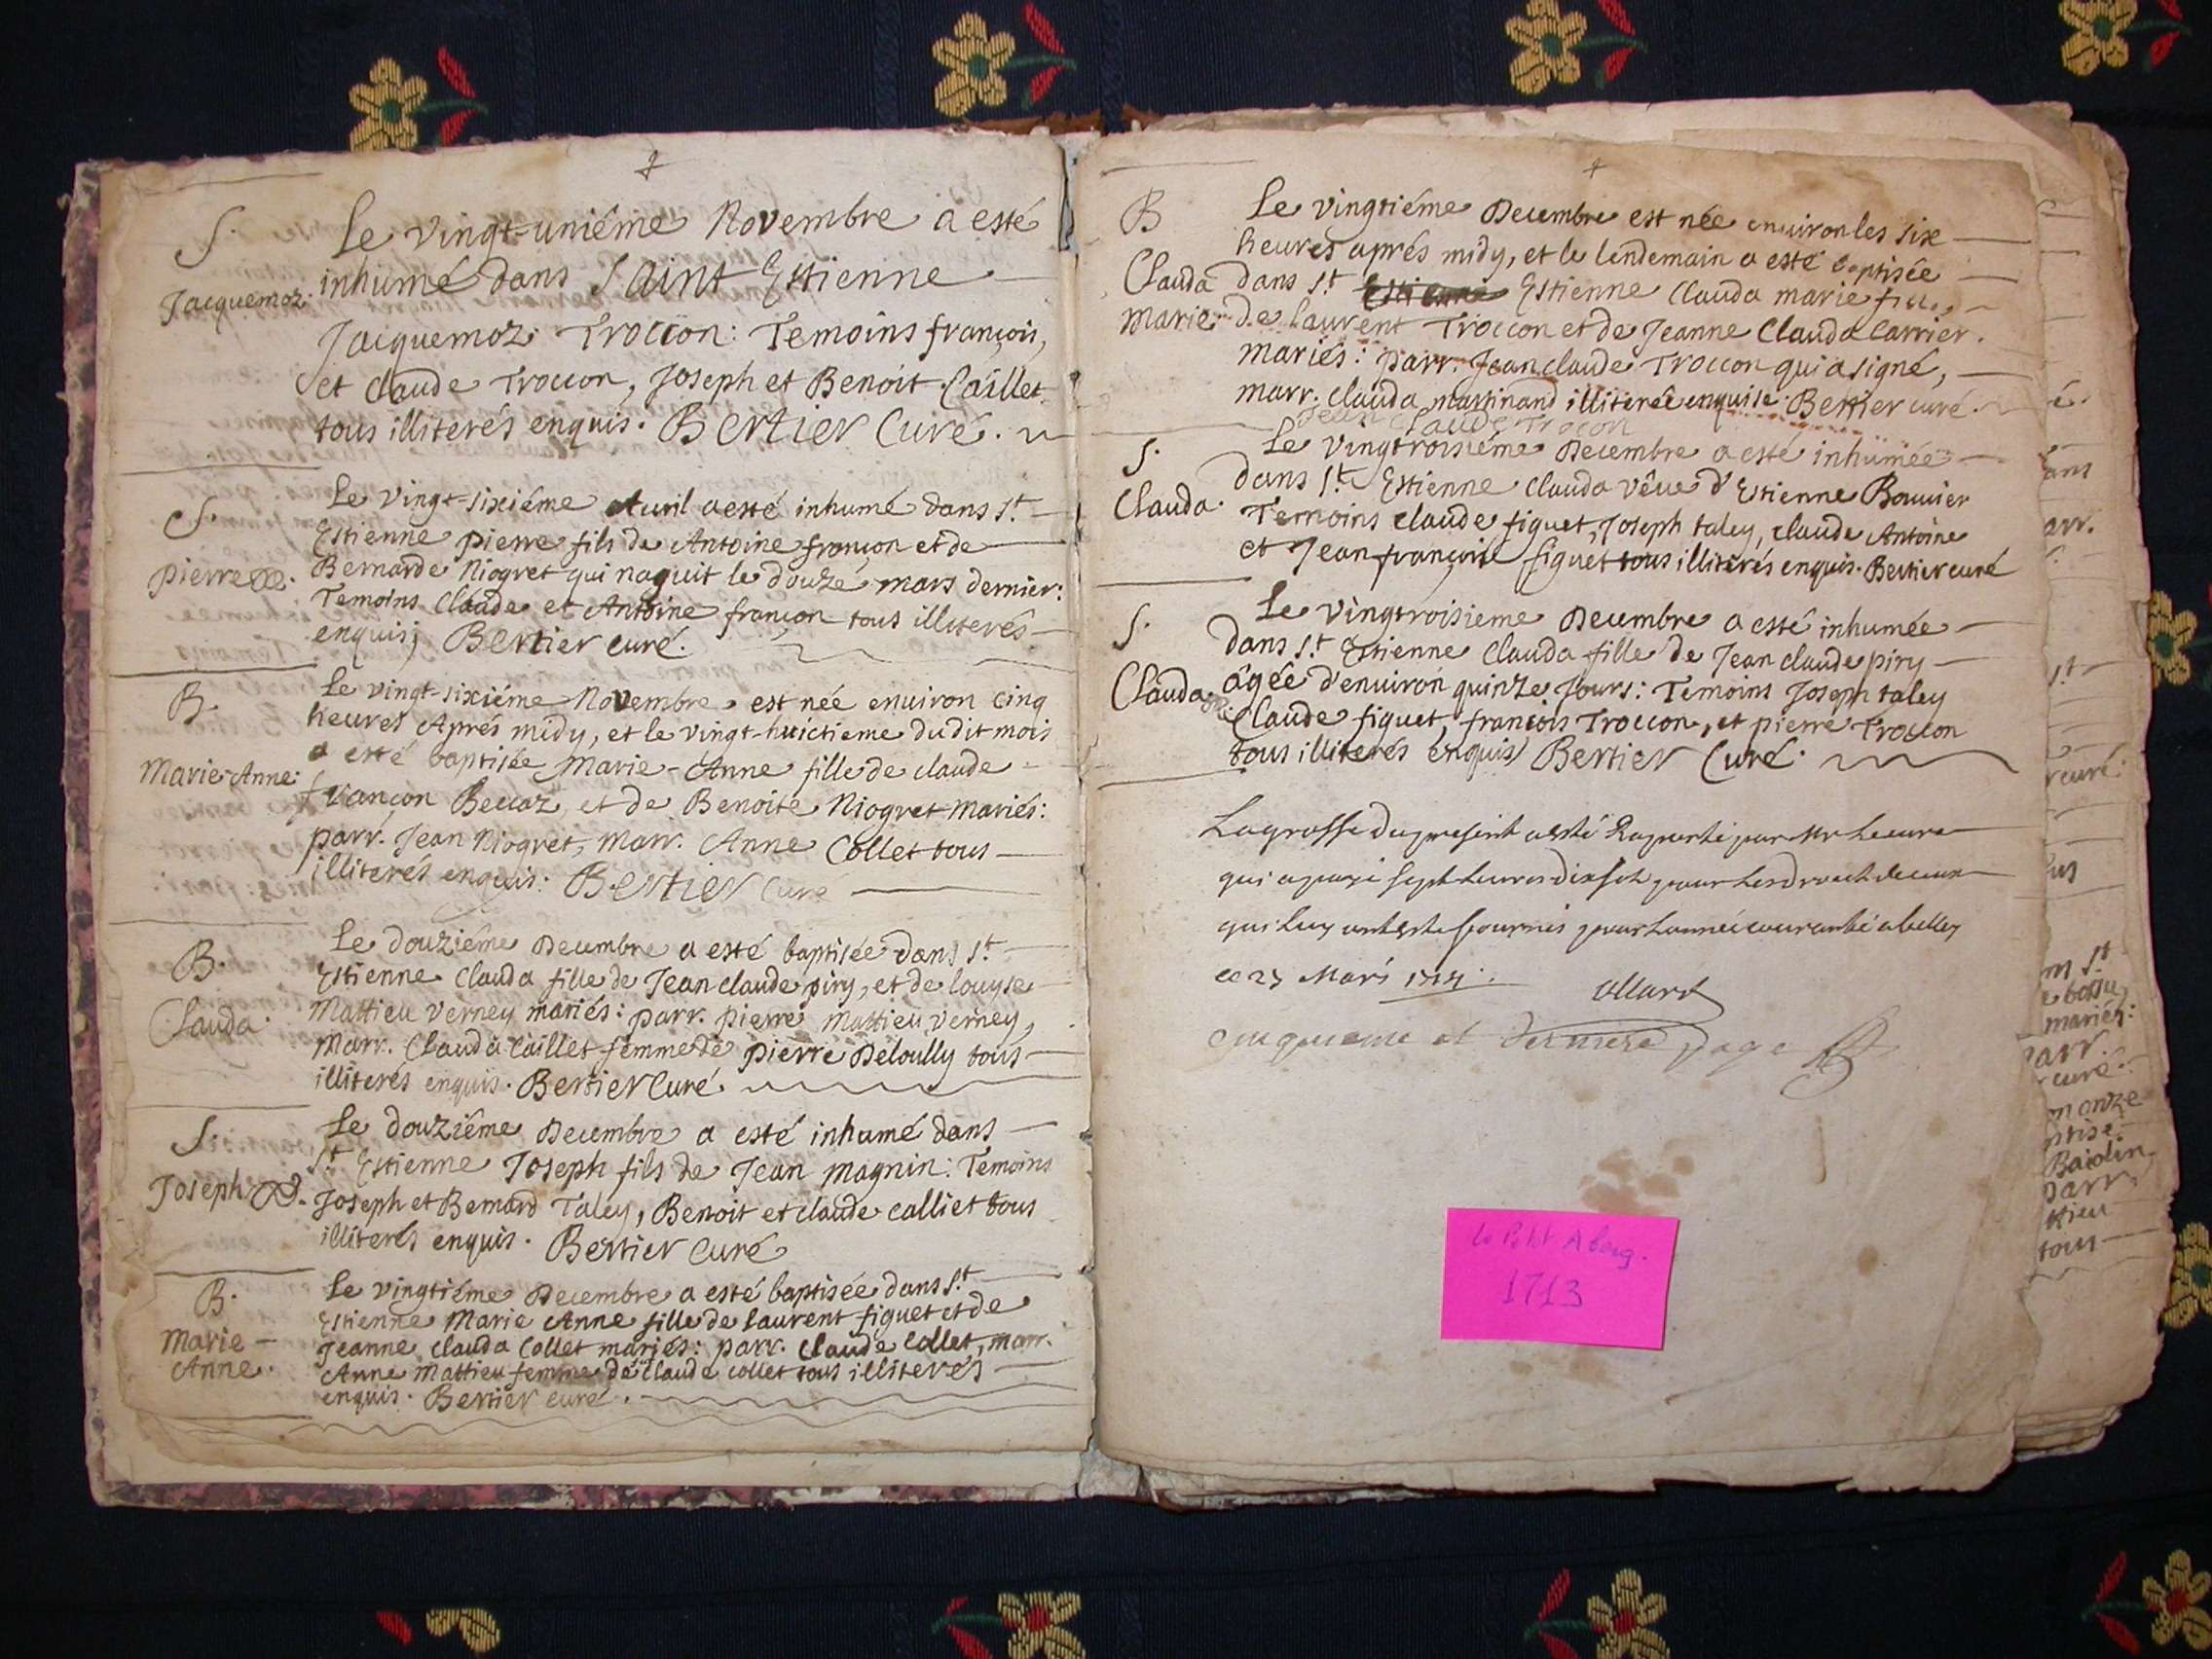 S.
Jacquemoz.
Le vingt-uniéme Novembre a esté
inhumé dans Saint Estienne
Jacquemoz Troccon: Temoins françois,
et claude Troccon, Joseph et Benoit Caillet
tous illiterés enquis. Bertier Curé.
S.
pierre
Le vingt-sixiéme Auril a esté inhumé dans St.
Estienne pierre fils de Antoine françon et de
Bernarde Niogret qui naquit le douze mars dernier:
Temoins Claude et Antoine françon tous illiterés
enquis; Bertier curé.
B.
Marie-Anne.
Le vingt-sixiéme Novembre est née enuiron cinq
heures Aprés midy, et le vingt-huictieme dudit mois
a esté baptisée Marie-Anne fille de claude
françon Beccoz, et de Benoite Niogret mariés:
parr. Jean Niogret, Marr. Anne Collet tous
illiterés enquis: Bertier Curé
B.
Clauda.
Le douziéme Decembre a esté baptisée dans St.
Estienne Clauda fille de Jean claude piry, et de louyse
Mattieu Verney mariés: parr. pierre Mattieu Verney,
Marr. Clauda Caillet femme de pierre Deloully tous
illiterés enquis. Bertier Curé.
S.
Joseph
Le douziéme Decembre a esté inhumé dans
St. Estienne Joseph fils de Jean Magnin: Temoins
Joseph et Bernard Taley, Benoit et claude calliet tous
illiterés enquis. Bertier Curé
B.
Marie
Anne.
Le vingtiéme Decembre a esté baptisée dans St.
Estienne Marie Anne fille de laurent figuet et de
Jeanne clauda Collet mariés: parr. Claude Collet, marr.
Anne Mattieu femme de claude collet tous illiterés
enquis. Bertier curé.
B
Clauda
Marie
Le vingtiéme Decembre est née enuiron les six
heures aprés midy, et le lendemain a esté baptisée
dans St. Estienne Estienne Clauda marie fille
de laurent Troccon et de Jeanne Clauda Carrier
mariés: parr. Jean claude Troccon qui a signé,
marr. clauda martinand illiterée enquise. Bertier curé.
Jean Claude Trocon
S.
Clauda.
Le vingtroisiéme Decembre a esté inhumée
dans St. Estienne Clauda vêue d'Estienne Bouuier
Temoins claude figuet, Joseph taley, claude Antoine
et Jean françois figuet tous illiterés enquis. Bertier curé
S.
Clauda.
Le vingtroisieme Decembre a esté inhumée
dans St. Estienne Clauda fille de Jean claude piry
âgée d'enuiron quinze Jours: Temoins Joseph taley
Claude figuet, françois Troccon, et pierre Troccon
tous illiterés enquis Bertier Curé.
La grosse du present a esté Raporté par Mr Le cure
qui a payé sept liures dix sols pour Les droicts de ceux
qui Luy ont esté fournis pour L'année courante a belley
ce 23 Mars 1714.
Allard
Cinquieme et derniere page
le Petit Aberg.
1713
é.
ans
arr.
St
curé.
m St
mariés:
parr.
curé.
n onze
ptisé
parr.
ttieu
tous